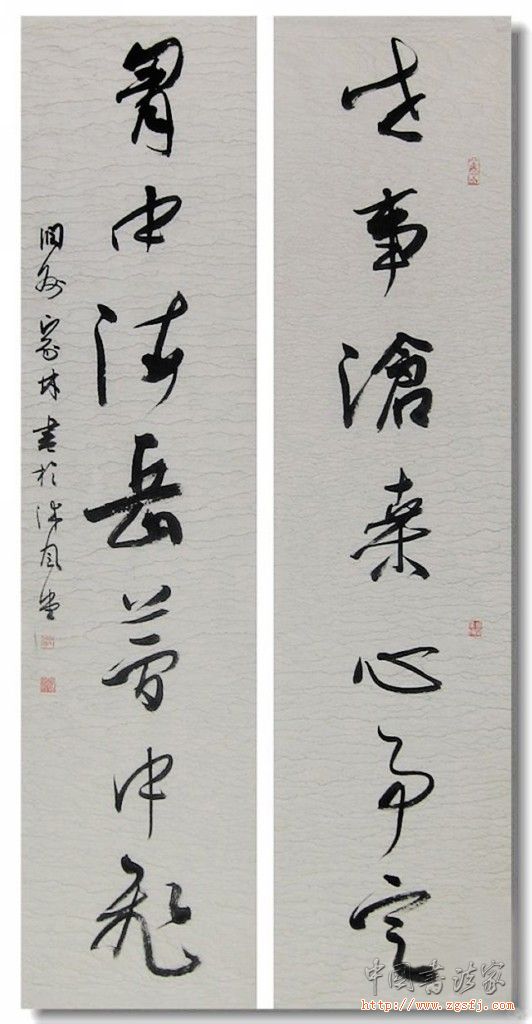 世事滄桑心事定
胸中海岳夢中飛
润州林書於沐風堂
中国书法家
http://www.zgsfj.com